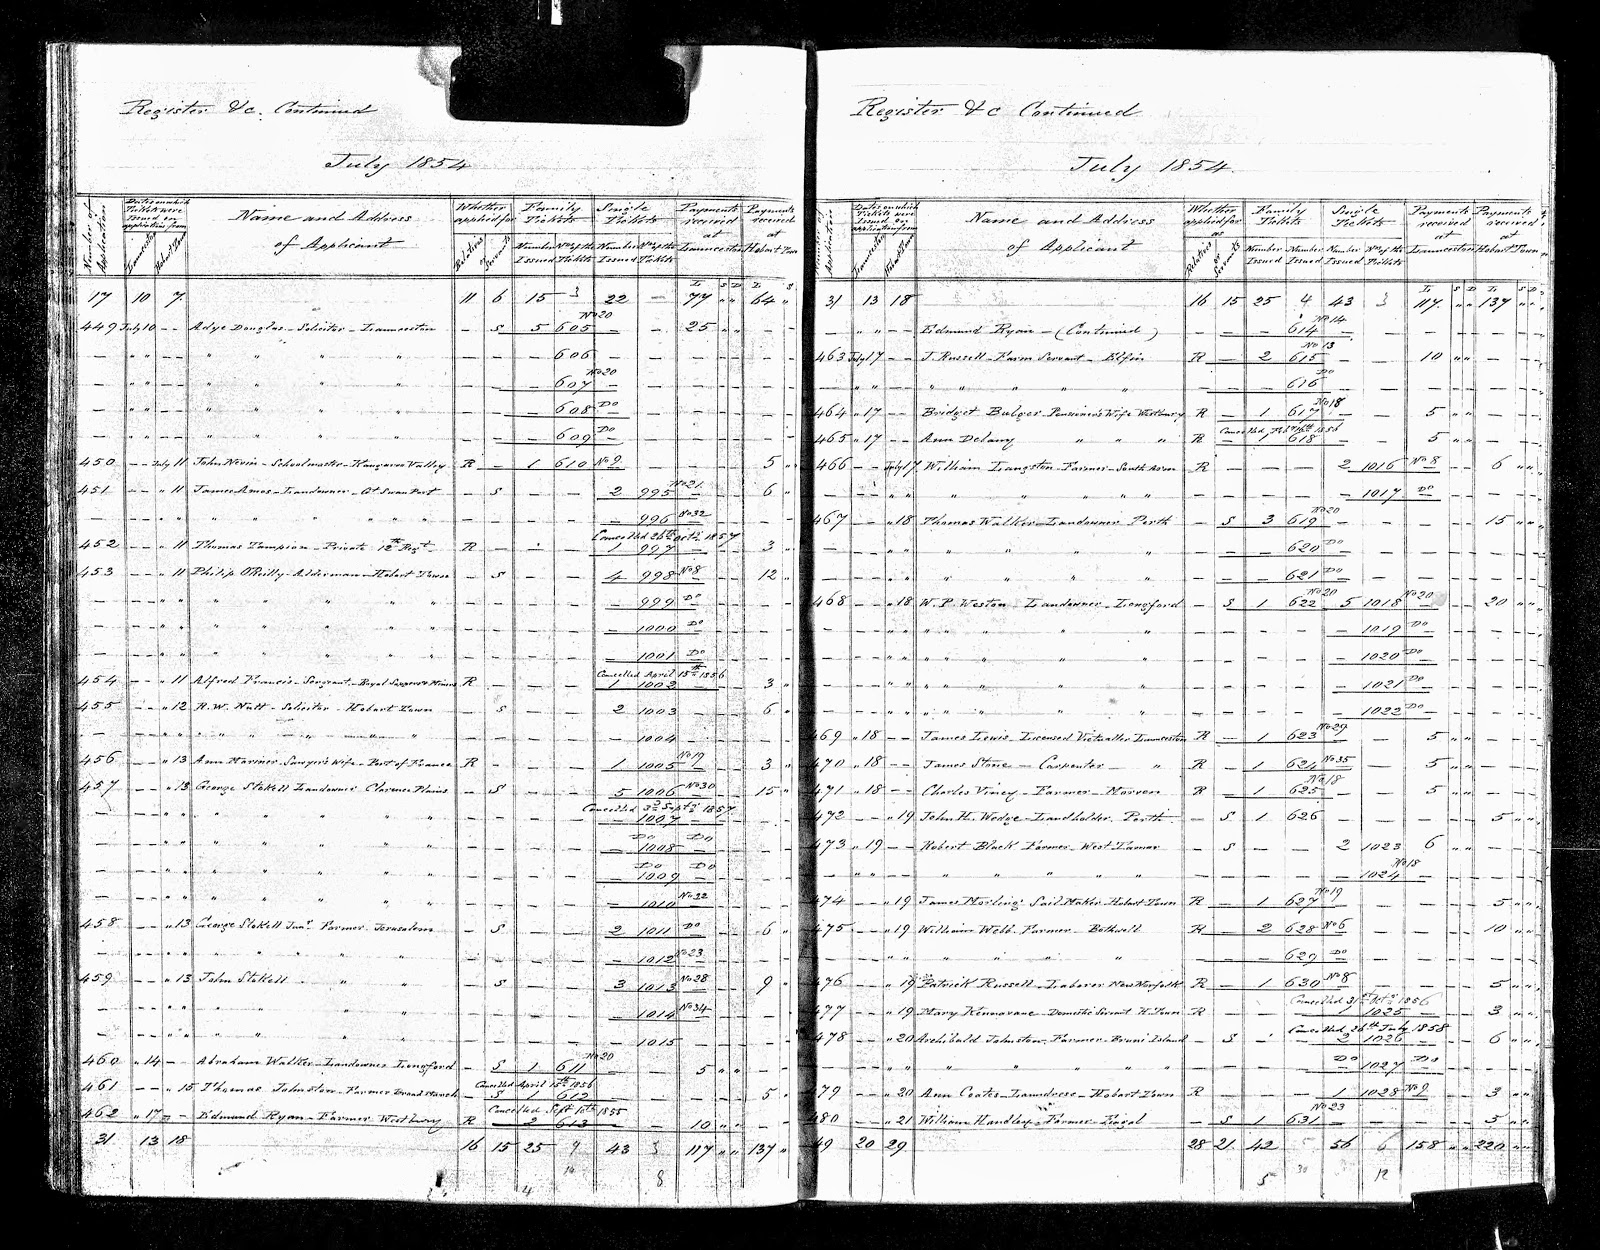 Register &c. Continued
July 1854
Number of Application
Dates on which Tickets were Issued on application from
Launceston
Hobart Town
Name and Address of Applicant
Whether applied for
Relations or Servants
Family Tickets
Number Issued
Nos of the Tickets
Single Tickets
Number Issued
Nos of the Tickets
Payments received at Launceston
Payments received at Hobart Town
17 10 7 11 6 15 3 22 — 77 " " 64 "
449 July 10 — — Adye Douglas - Solicitor - Launceston — S 5 605 No 20 — — 25 " "
" " " 606
" " " 607 No 20
" " " 608 Do
" " " 609 Do
450 — — July 11 John Nevin - Schoolmaster - Kangaroo Valley R — 1 610 No 9 — — 5 "
451 — — " 11 James Amos - Landowner - Gt Swan Port — S — — 2 995 No 21 — 6 "
" " " " " " 996 No 32
Cancelled 26th Octr 1857
452 — — " 11 Thomas Tampion - Private 12th Regt R — — — 1 997 — 3 "
453 — — " 11 Philip O'Reilly - Alderman - Hobart Town — S — — 4 998 No 8 — 12 "
" " " " " 999 Do
" " " " " 1000 Do
" " " " " 1001 Do
Cancelled April 15th 1856
454 — — " 11 Alfred Francis - Sergeant - Royal Sappers & Miners R — — — 1 1002 — 3 "
455 — — " 12 R. W. Nutt - Solicitor - Hobart Town — S — — 2 1003 — 6 "
" " " 1004
456 — — " 13 Ann Mariner - Sawyer's Wife - Port of France R — — — 1 1005 No 19 — 3 "
457 — — " 13 George Stokell Landowner Clarence Plains — S — — 5 1006 No 30 — 15 "
Cancelled 3rd Septr 1857
" " " " 1007
Do Do
" " " " 1008
Do Do
" " " " 1009
" " " " 1010 No 22
458 — — " 13 George Stokell Junr Farmer Jerusalem — S — — 2 1011 Do — 6 "
" " " " 1012 No 23
459 — — " 13 John Stokell " " — S — — 3 1013 No 28 — 9 "
" " " " 1014 No 34
" " " " 1015
460 " 14 — Abraham Walker - Landowner Longford — S 1 611 No 20 — — 5 " "
Cancelled April 15th 1856
461 — — " 15 Thomas Johnston - Farmer Broad Marsh — S 1 612 — — 5 "
Cancelled Sept 10th 1855
462 " 17 — Edmund Ryan - Farmer Westbury R — 2 613 — — 10 " "
31 13 18 16 15 25 9 43 3 117 " " 137 "
4 8
Register &c Continued
July 1854
Number of Application
Dates on which Tickets were Issued on application from
Launceston
Hobart Town
Name and Address of Applicant
Whether applied for
Relations or Servants
Family Tickets
Number Issued
Number Issued
Single Tickets
Number Issued
Nos of the Tickets
Payments received at Launceston
Payments received at Hobart Town
31 13 18 16 15 25 4 43 3 117 " " 137 " "
" " Edmund Ryan - (Continued) 614 No 14
463 July 17 — — J. Russell - Farm Servant - Elfin R — 2 615 No 13 — — 10 " "
" " " " 616 Do
464 " 17 — — Bridget Bulger - Pensioner's Wife Westbury R — 1 617 No 18 — — 5 " "
Cancelled Feby 16th 1856
465 " 17 — — Ann Delany " " " R — 1 618 — — 5 " "
466 — — July 17 William Langston - Farmer - South Arm R — — — 2 1016 No 8 — 6 " "
" " " " " 1017 Do
467 — — " 18 Thomas Walker - Landowner Perth — S 3 619 No 20 — — 15 " "
" " " " 620 Do
" " " " 621 Do
468 — — " 18 W. P. Weston - Landowner - Longford — S 1 622 No 20 5 1018 No 20 — 20 " "
" " " " " 1019 Do
" " " " " 1020 Do
" " " " " 1021 Do
" " " " " 1022 Do
469 " 18 — — James Lewis - Licensed Victualler Launceston R — 1 623 No 29 — — 5 " "
470 " 18 — — James Stone - Carpenter - " R — 1 624 No 35 — — 5 " "
471 " 18 — — Charles Viney - Farmer - Morven R — 1 625 No 18 — — 5 " "
472 — — " 19 John H. Wedge - Landholder Perth — S 1 626 — — 5 " "
473 " 19 — — Robert Black Farmer - West Tamar — S — — 2 1023 6 " "
" " " " " " 1024 No 18
474 — — " 19 James Morling Sail Maker Hobart Town R — 1 627 No 19 — — 5 " "
475 — — " 19 William Webb Farmer - Bothwell R — 2 628 No 6 — — 10 " "
" " " " 629 Do
476 — — " 19 Patrick Russell - Laborer New Norfolk R — 1 630 No 8 — — 5 " "
Cancelled 31st Octr 1856
477 — — " 19 Mary Kinnavane - Domestic Servant H. Town R — — — 1 1025 — 3 " "
Cancelled 26th July 1858
478 — — " 20 Archibald Johnston Farmer Bruni Island — S — — 2 1026 — 6 " "
Do Do
" " " " " 1027
479 — — " 20 Ann Coates - Laundress - Hobart Town R — — — 1 1028 No 9 — 3 " "
480 — — " 21 William Handley - Farmer - Fingal — S 1 631 No 23 — — 5 " "
49 20 29 28 21 42 5 56 6 158 " " 220 " "
5 30 12